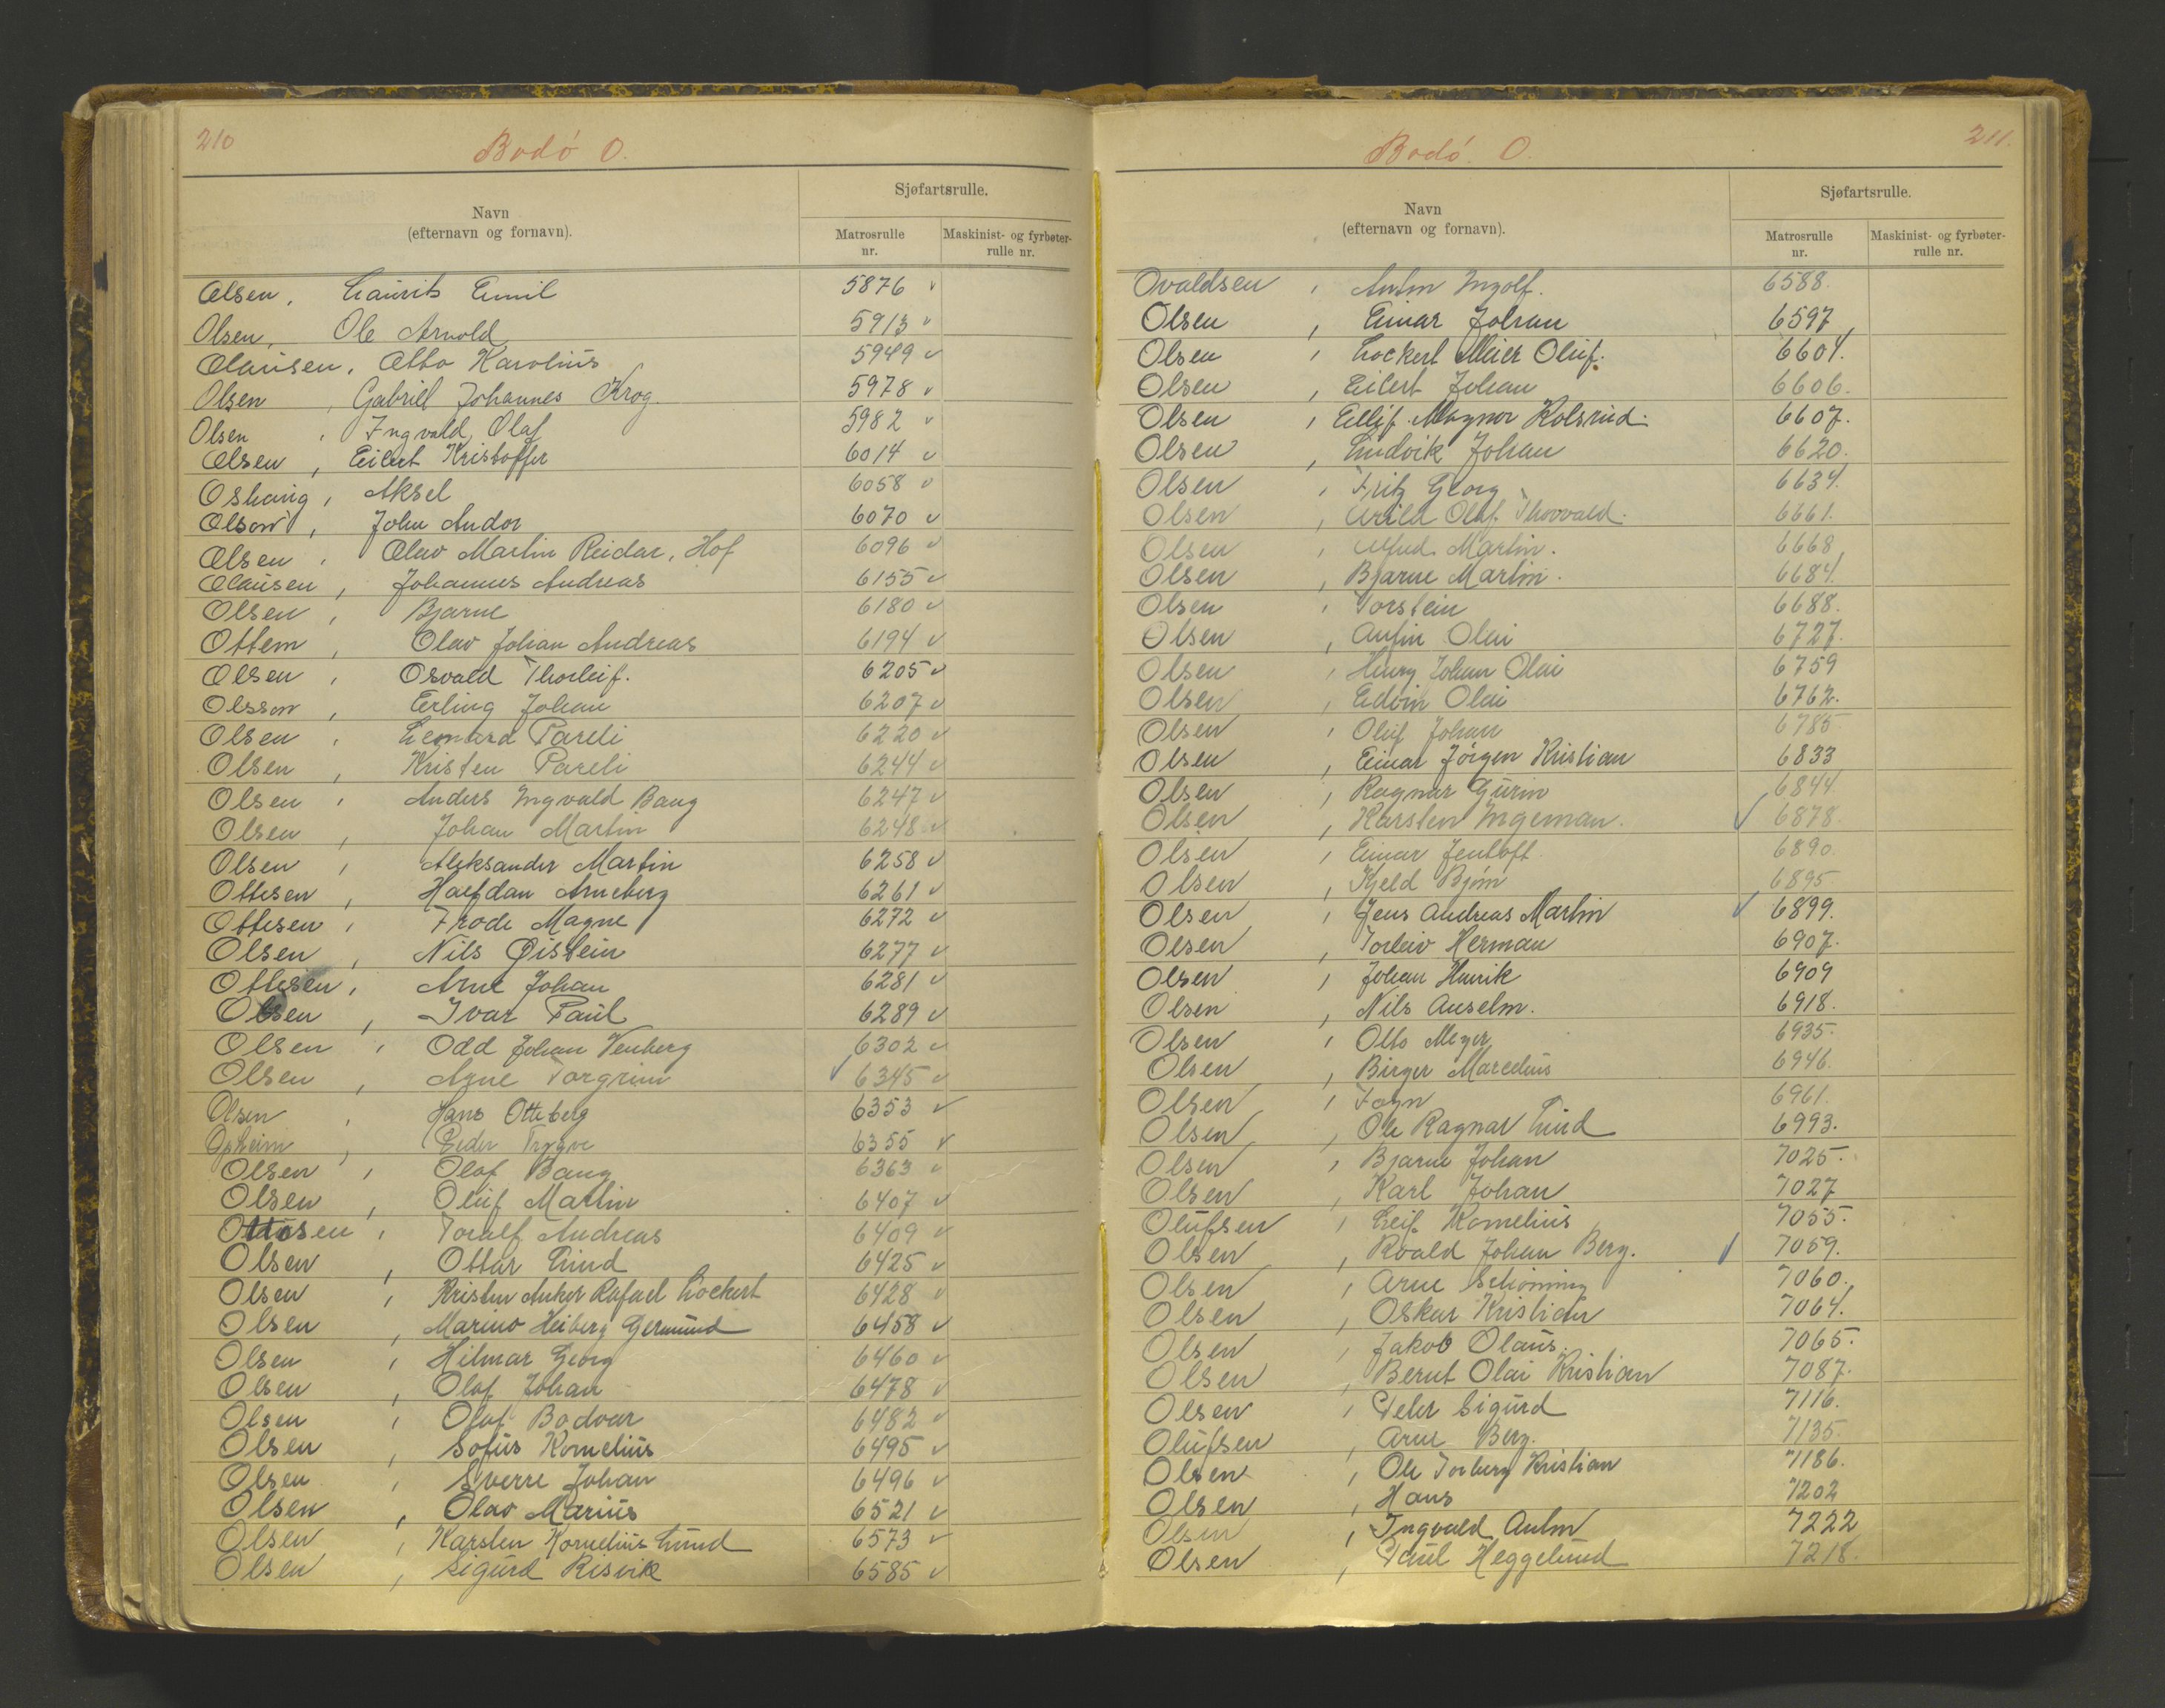 210
Bodó O.
Navn
(efternavn og fornavn).
Sjøfartsrulle.
Matrosrulle
nr.
Maskinist- og fyrbøter-
rulle nr.
Olsen, Laurits Emil 5876 v
Olsen, Ole Arnold 5913 v
Olausen, Otto Karolius 5949 v
Olsen, Gabriel Johannes Krog. 5978 v
Olsen, Ingvald Olaf 5982 v
Olsen, Eilert Kristoffer 6014 v
Oshaug, Aksel 6058 v
Olsen, John Andor 6070 v
Olsen, Olav Martin Reidar, Hof 6096 v
Olausen, Johannes Andreas 6155 v
Olsen, Bjarne 6180 v
Ottem, Olav Johan Andreas 6194 v
Olsen, Osvald Thorleif. 6205 v
Olsson, Erling Johan 6207 v
Olsen, Leonhard Pareli 6220 v
Olsen, Kristen Pareli 6244 v
Olsen, Anders Ingvald Bang 6247 v
Olsen, Johan Martin 6248 v
Olsen, Aleksander Martin 6258 v
Ottesen, Halfdan Arneberg 6261 v
Ottesen, Frode Magne 6272 v
Olsen, Nils Øistein 6277 v
Ottesen, Arne Johan 6281 v
Olsen, Ivar Paul 6289 v
Olsen, Odd Johan Venberg 6302 v
Olsen, Arne Torgrim ✓ 6345 v
Olsen, Hans Otteberg 6353 v
Opheim, Peder Trygve 6355 v
Olsen, Olaf Bang 6363 v
Olsen, Oluf Martin 6407 v
Ottosen, Toralf Andreas 6409 v
Olsen, Ottar Lund 6425 v
Olsen, Kristen Anker Rafael Lockert 6428 v
Olsen, Marino Heiberg Germund 6458 v
Olsen, Hilmar Georg 6460 v
Olsen, Olaf Johan 6478 v
Olsen, Olaf Bodvar 6482 v
Olsen, Sofus Kornelius 6495 v
Olsen, Sverre Johan 6496 v
Olsen, Olav Marius 6521 v
Olsen, Karsten Kornelius Lund 6573 v
Olsen, Sigurd Risvik 6585 v
211.
Bodó. O.
Navn
(efternavn og fornavn).
Sjøfartsrulle.
Matrosrulle
nr.
Maskinist- og fyrbøter-
rulle nr.
Ovaldsen, Anton Ingolf. 6588.
Olsen, Einar Johan 6597
Olsen, Lockert Meier Oluf. 6604.
Olsen, Eilert Johan 6606.
Olsen, Eilif Magnor Kolsrud. 6607.
Olsen, Ludvik Johan 6620.
Olsen, Fritz Georg 6634.
Olsen, Arild Olaf Thorvald. 6661.
Olsen, Martin. 6668
Olsen, Bjarne Martin. 6684.
Olsen, Torstein 6688.
Olsen, Anfin Olai 6727.
Olsen, Henry Johan Olai 6759
Olsen, Edvin Olai 6762.
Olsen, Oluf Johan 6785
Olsen, Einar Jörgen Kristian 6833
Olsen, Ragnar Gurin 6844.
Olsen, Karsten Ingeman. ✓ 6878.
Olsen, Einar Jentoft. 6890.
Olsen, Kjeld Bjørn 6895
Olsen, Jens Andreas Martin ✓ 6899.
Olsen, Torleiv Herman 6907.
Olsen, Johan Henrik 6909
Olsen, Nils Anselm. 6918.
Olsen, Otto Meyer 6935.
Olsen, Birger Marcelius 6946.
Olsen, 6961.
Olsen, Ole Ragnar Lund 6993.
Olsen, Bjarne Johan 7025.
Olsen, Karl Johan 7027
Olufsen, Leif Kornelius 7055.
Olsen, Roald Johan Berg. ✓ 7059.
Olsen, Arne Schönning 7060.
Olsen, Oskar Kristian 7064.
Olsen, Jakob Olaus. 7065.
Olsen, Bernt Olai Kristian 7087.
Olsen, Peter Sigurd 7116.
Olufsen, Arne Berg. 7135.
Olsen, Ole Torberg Kristian 7186.
Olsen, Hans 7202
Olsen, Ingvald Anton 7222
Olsen, Paul Heggelund 7218.